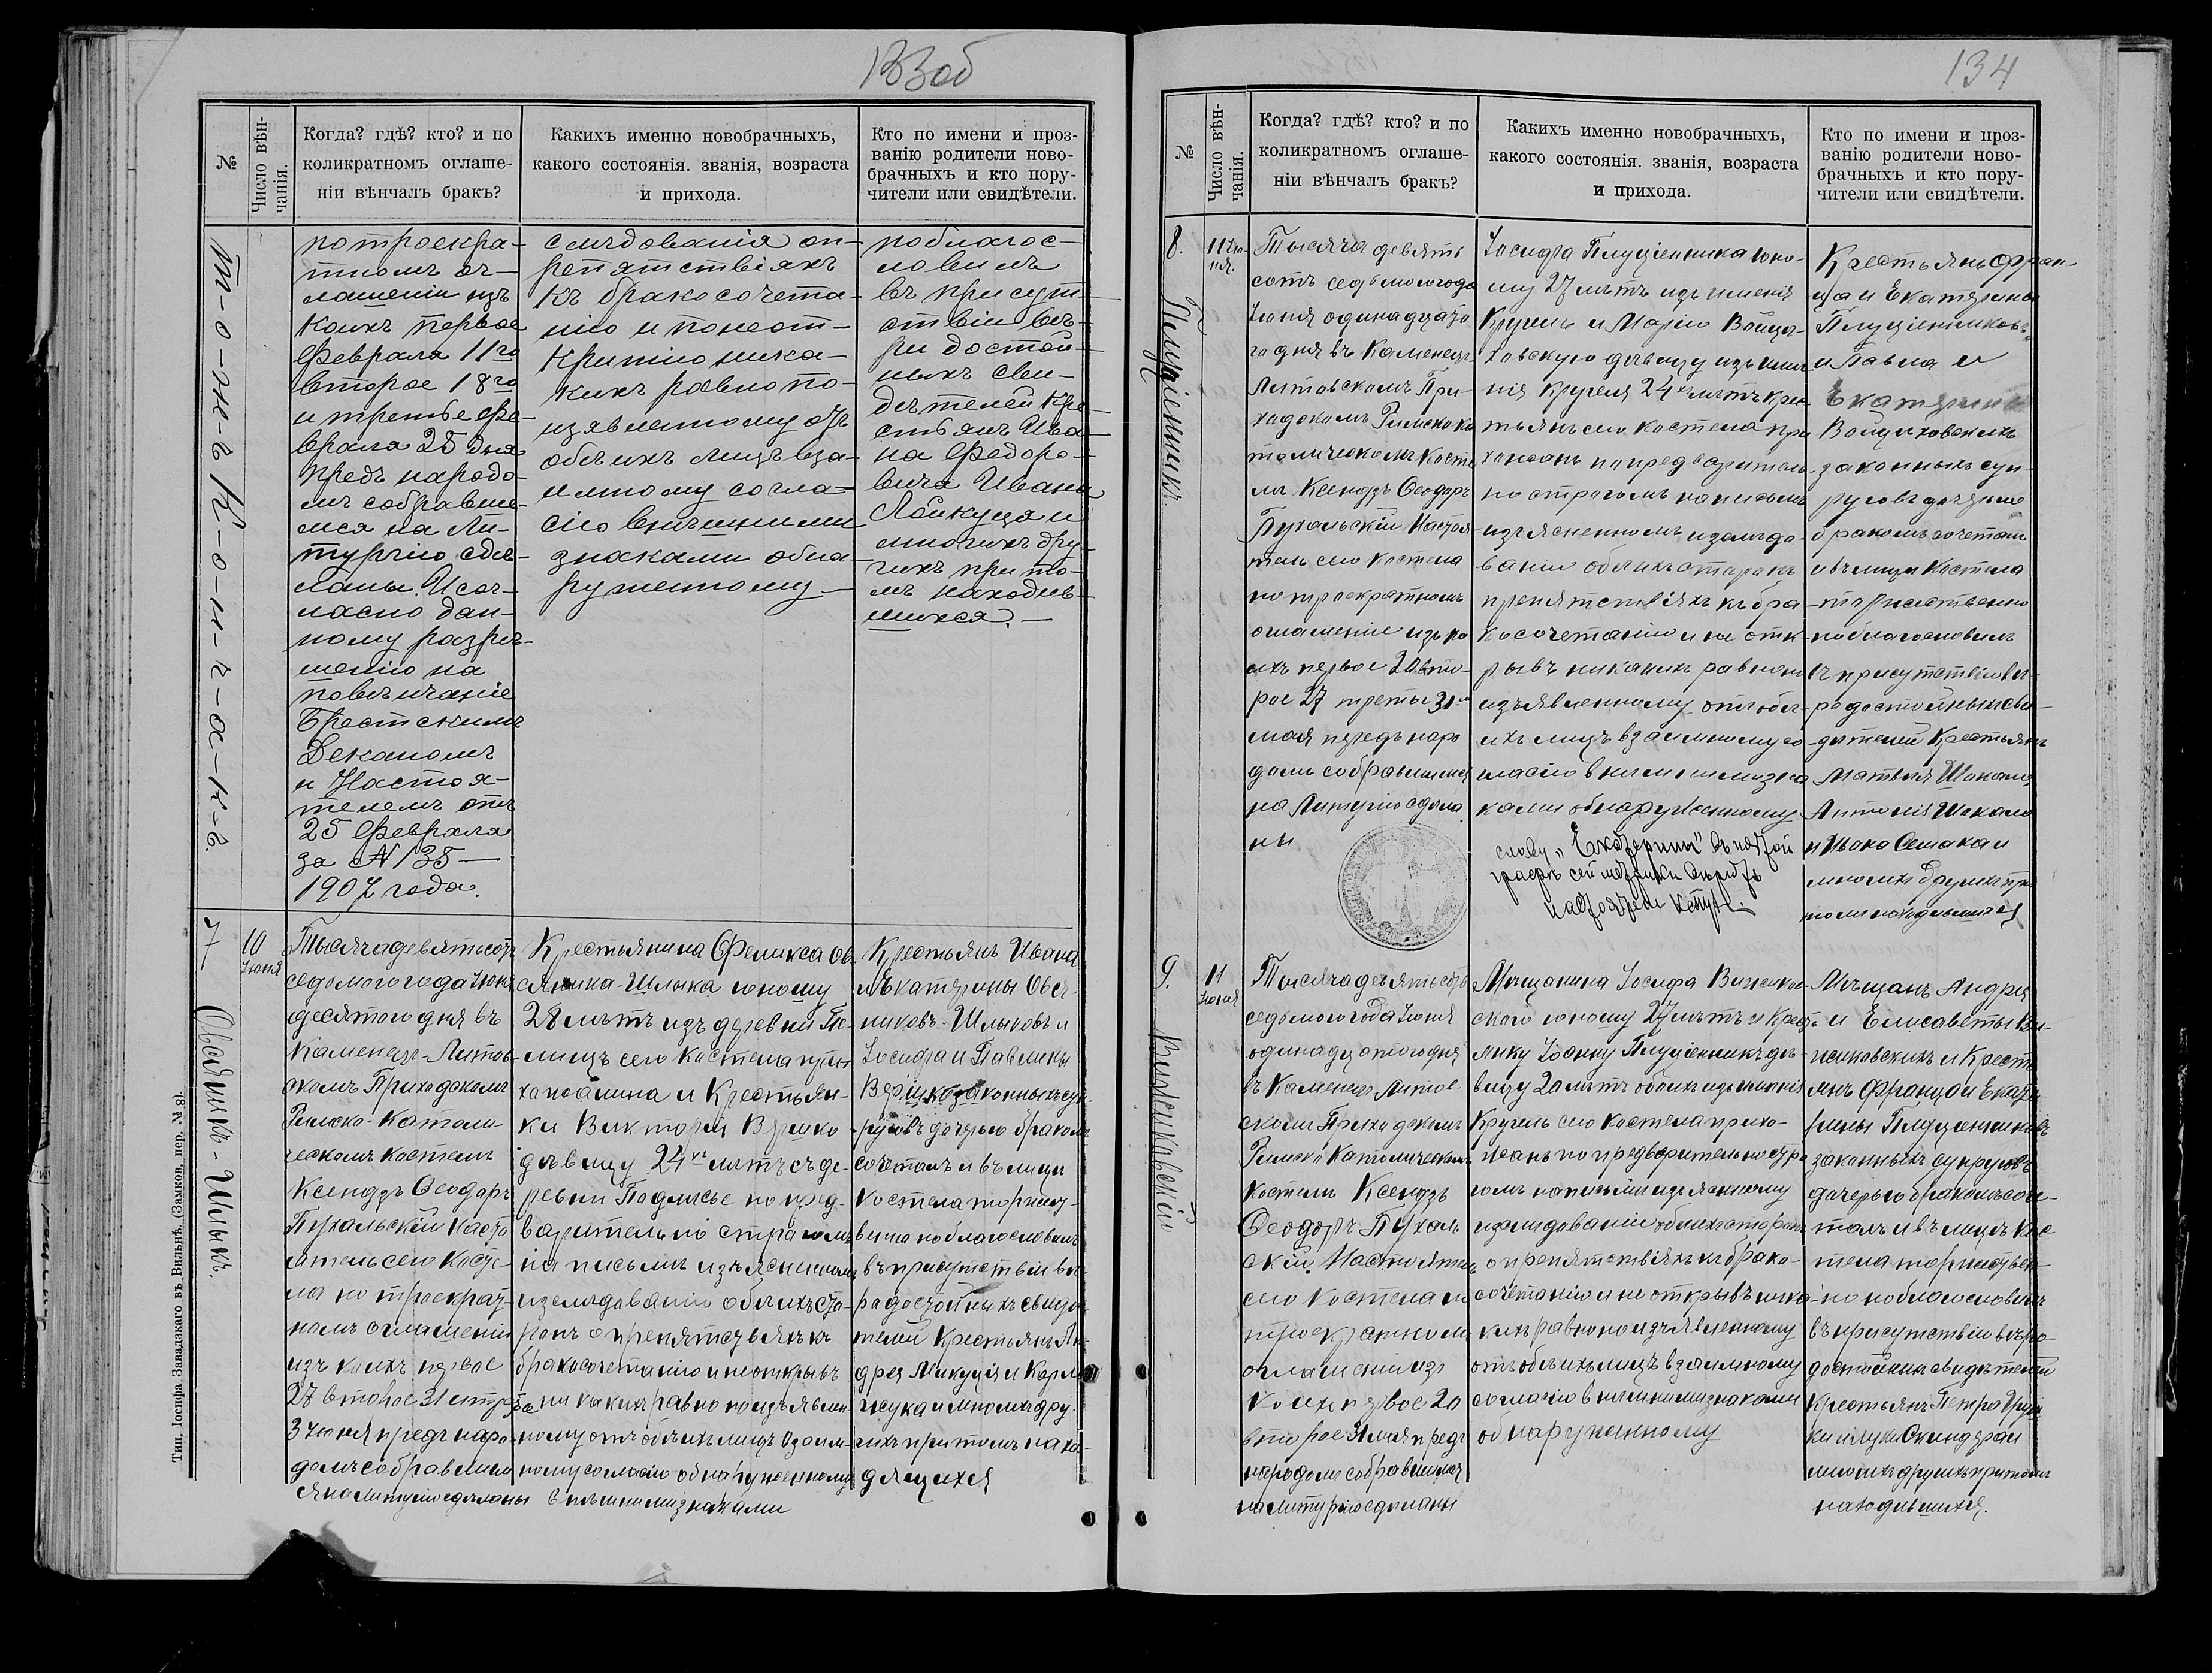 133об
№
Число вѣн-
чанія.
Когда? гдѣ? кто? и по
коликратномъ оглаше-
ніи вѣнчалъ бракъ?
Какихъ именно новобрачныхъ,
какого состоянія. званія, возраста
и прихода.
Кто по имени и проз-
ванію родители ново-
брачныхъ и кто пору-
чители или свидѣтели.
по троекра-
тномъ ог-
лашеніи изъ
коихъ первое
Февраля 11го
второе 18го
и третье Фе-
враля 25 дня
предъ народо-
мъ собравше-
мся на Ли-
тургію сдѣ-
ланы. И сог-
ласно дан-
ному разрѣ-
шенію на
повѣнчаніе
Брестскимъ
Деканомъ
и Настоя-
телемъ отъ
25 Февраля
за № 135 —
1907 года.
слѣдованія оп-
репятствіяхъ
къ бракосочета-
нію и по неот-
крытію ника-
кихъ равно по-
изявленому отъ
обѣихъ лицъ вза-
имному согла-
сію внѣшними
знаками обна-
руженому —
поблагос-
ловилъ
въ присут-
ствіи вѣ-
ры достой-
ныхъ сви-
дѣтелей Кре-
стьянъ Ива-
на Федоро-
вича Ивана
и
многихъ дру-
гихъ при то-
мъ находив-
шихся. —
7
Овсяникъ-Шлыкъ.
10
Іюня
Тысяча девятьсотъ
седьмого года Іюня
десятого дня въ
Каменецъ-Литов-
скомъ Приходскомъ
Римско-Католи-
ческомъ костелѣ
Ксендзъ Ѳеодоръ
Пухальскій Насто
ятель сего Косте-
ла по троекрат-
номъ оглашеніи
изъ коихъ первое
27 второе 31 и третье
3 Іюня предъ наро-
домъ собравшим
ся на Литургію сдѣланы
Крестьянина Феликса Ов-
сяника-Шлыка юношу
28 лѣтъ изъ деревни Пе-
лищъ сего костела при
хожанина и Крестьян-
ки Викторіи
дѣвицу 24хъ лѣтъ съ де-
ревни Подлисье по пред-
варительно строгомъ
на письмѣ изъясненномъ
изслѣдованіи обѣихъ сто-
ронъ о препятствіяхъ къ
бракосочетанію и не открывъ
ни какихъ равно по изъявлен-
ному отъ обѣихъ лицъ взаим-
ному согласію обнаруженному
внѣшними знаками
Крестьянъ Ивана
и Екатерины Овся-
никовъ-Шлыковъ и
Іосифа и Павлины
законныхъ суп-
руговъ дочерью бракомъ
сочеталъ и въ лицѣ
костела торжест-
венно поблагословилъ
въ присутствіи вѣ-
ры достойныхъ свидѣ-
телей Крестьянъ Ан-
дрея Микуція и Карла
и многихъ дру-
гихъ при томъ нахо-
дящихся
Тип. Іосифа Завадзкаго въ Вильнѣ. (Замков. пер. № 8).
134
№
Число вѣн-
чанія.
Когда? гдѣ? кто? и по
коликратномъ оглаше-
ніи вѣнчалъ бракъ?
Какихъ именно новобрачныхъ,
какого состоянія. званія, возраста
и прихода.
Кто по имени и проз-
ванію родители ново-
брачныхъ и кто пору-
чители или свидѣтели.
8.
Плуціенникъ.
11 Ію-
ня.
Тысяча девять
сотъ седьмого года
Іюня одинадцато
го дня въ Каменецъ
Литовскомъ При-
ходскомъ Римско ка
толическомъ косте
лѣ Ксендзъ Ѳеодоръ
Пухальскій Настоя-
тель сего костела
по троекратномъ
оглашеніи изъ ко
ихъ первое 20 вто-
рое 27 третье 31го
мая предъ наро
домъ собравшимся
на Литургію сдѣла
ны
Іосифа Плуціенника юно-
шу 27 лѣтъ изъ имѣнія
Кругель и Марію Войце-
ховскую дѣвицу изъ имѣ
нія Кругеля 24хъ лѣтъ крес
тьянъ сего костела при
хожанъ по предварительно-
но строгомъ на письмѣ
изъясненномъ изслѣдо-
ваніи обѣихъ сторонъ
препятствіяхъ къ бра
косочетанію и не отк-
рывъ никакихъ равно по
изъявленному отъ обѣ-
ихъ лицъ взаимному со
гласію внѣшними зна
ками обнаруженному
слову „Екатерины" въ пятой
графѣ сей метрики вѣрить
Настоятель
Крестьянъ Фран-
ца и Екатерины
Плуціенниковъ
и Павла и
Екатерины
Войцеховскихъ
законныхъ суп-
руговъ дочерью
бракомъ сочеталъ
и въ лицѣ Костела
торжественно
поблагословилъ
въ присутствіи вѣ-
ры достойныхъ сви-
дѣтелей Крестьянъ
Матвѣя
Антонія
и многихъ другихъ при
томъ находившихся
9.
11
Іюня
Тысяча девятьсотъ
седьмого года Іюня
одинадцатого дня
въ Каменецъ Литов-
скомъ Приходскомъ
Римско Католическомъ
костелѣ Ксендзъ
Ѳеодоръ Пухаль
скій Настоятель
сего костела по
троекратномъ
оглашеніи изъ
коихъ первое 20
второе 31 мая предъ
народомъ собравшимся
на Литургію сдѣланы
Мѣщанина Іосифа
юношу 27 лѣтъ и Крест-
янку Іоанну Плуціенникъ дѣ-
вицу 20 лѣтъ обоихъ изъ имѣнія
Кругель сего костела прихо-
жанъ по предварительно стро
гомъ на письмѣ изъясненному
изслѣдованіи обѣихъ сторонъ
о препятствіяхъ къ брако-
сочетанію и не открывъ ника-
кихъ равно по изъявленному
отъ обѣихъ лицъ взаимному
согласію внѣшними знаками
обнаруженному
Мѣщанъ Андрея
и Елисаветы
и Кресть
янъ Франца и Екате
рины Плуціенниковъ
законныхъ супруговъ
дочерью бракомъ соче-
талъ и въ лицѣ Кос
тела торжествен-
но поблагословилъ
въ присутствіи вѣры-
достойныхъ свидѣтелей
Крестьянъ Петра
и
многихъ другихъ при томъ
находившихся.